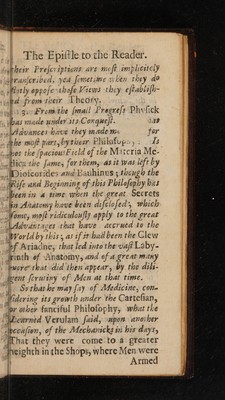 The Epistle to the Reader.
their Prescriptions are most implicitely
transcribed, yea sometime when they do
flatly oppose those Views they establish-
ed from their Theory.
3. From the small Progress Physick
has made under its Conquest.
Advances have they made for
the most part, by their Philosophy Is
not the spacious Field of the Materia Me-
dica the same, for them, as it was left by
Dioscorides and Bauhinus; though the
Rise and Beginning of this Philosophy has
been in a time when the great Secrets
in Anatomy have been disclosed; which
some, most ridiculously apply to the great
Advantages that have accrued to the
World by this; as if it had been the Clew
of Ariadne, that led into the vast Laby-
rinth of Anatomy, and of a great many
more that did then appear, by the dili-
gent scrutiny of Men at that time.
So that he may say of Medicine, con-
sidering its growth under the Cartesian,
or other fanciful Philosophy, what the
Learned Verulam said, upon another
occasion, of the Mechanicks in his days,
That they were come to a greater
heighth in the Shops, where Men were
Armed